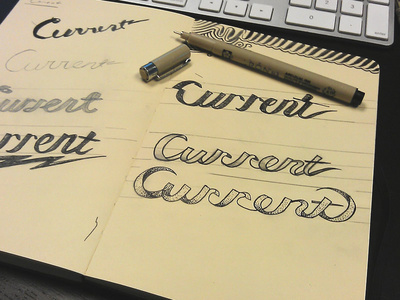 Current
Current
Current
rrent
Current
Current
Current